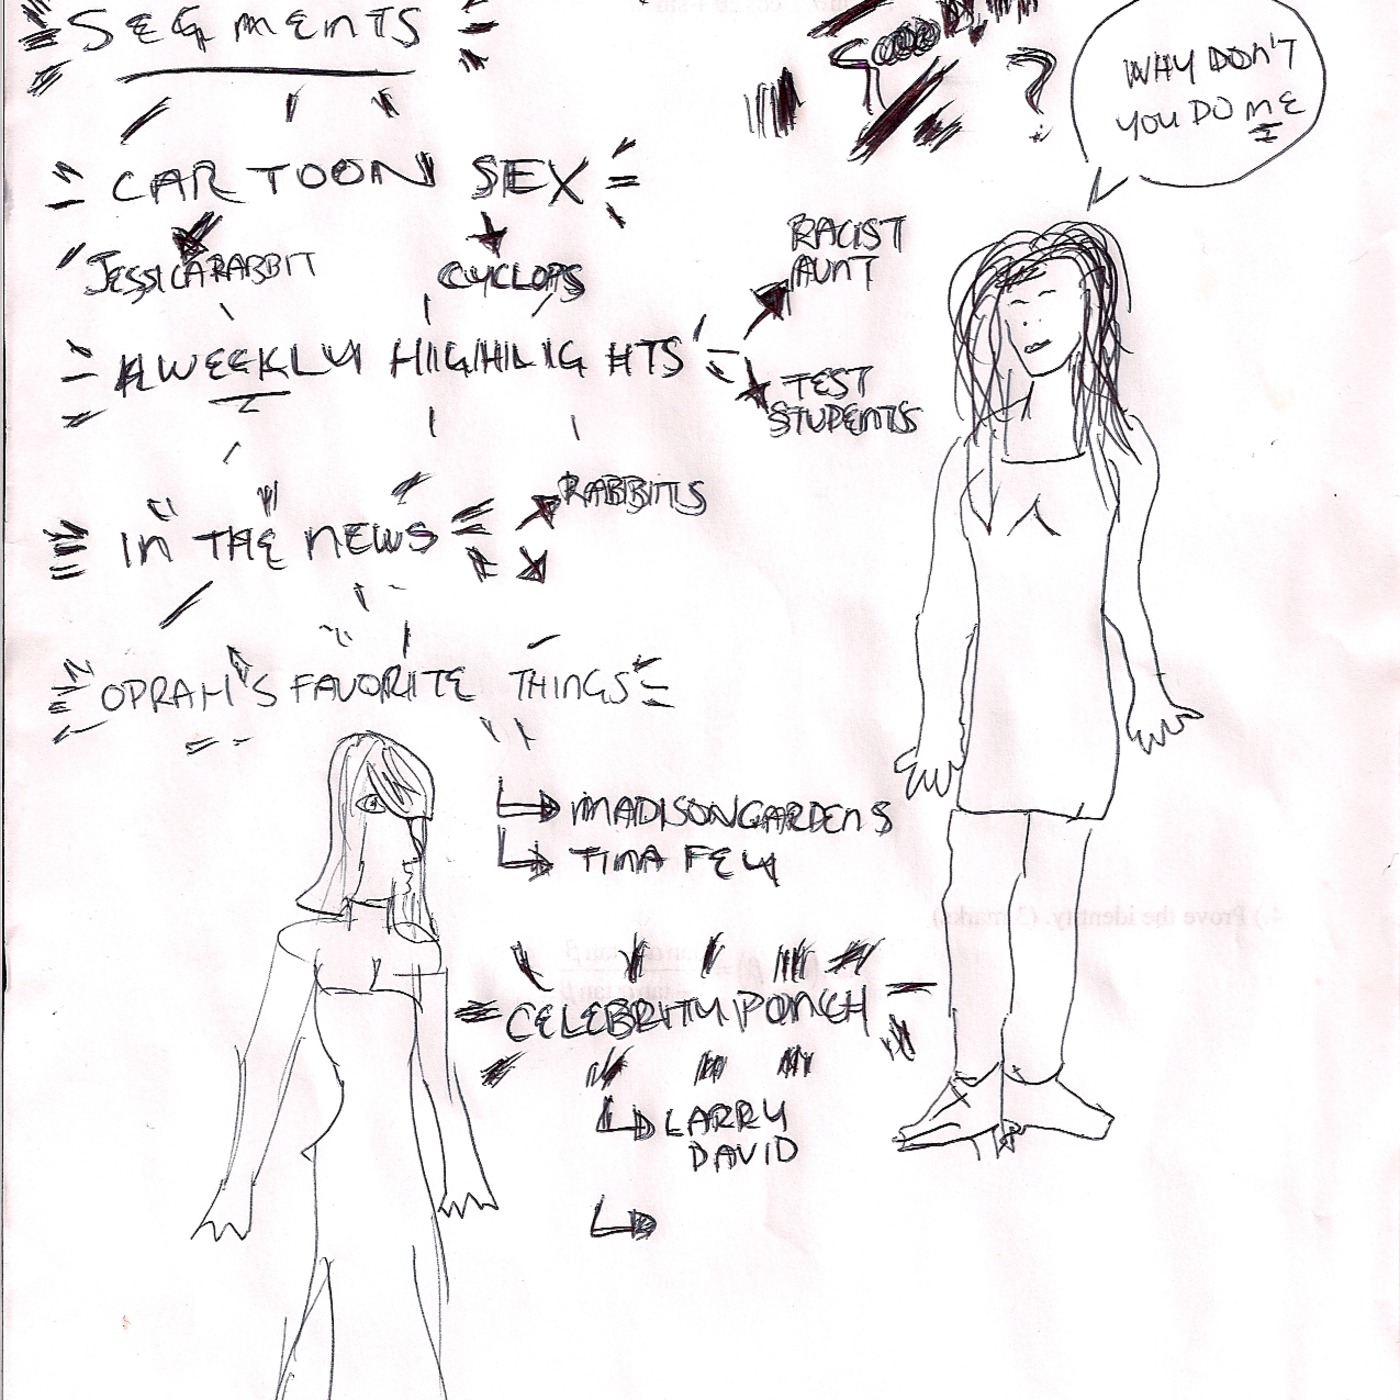 SEGMENTS
WHY DON'T
YOU DO ME
CARTOON SEX
JESSICA RABBIT
CYCLOPS
RACIST
AUNT
WEEKLY HIGHLIGHTS
TEST
STUDENTS
RABBITS
IN THE NEWS
OPRAH'S FAVORITE THINGS
MADISON GARDENS
TINA FEY
4.) Prove the identity. (3 marks)
CELEBRITY PONCH
LARRY
DAVID